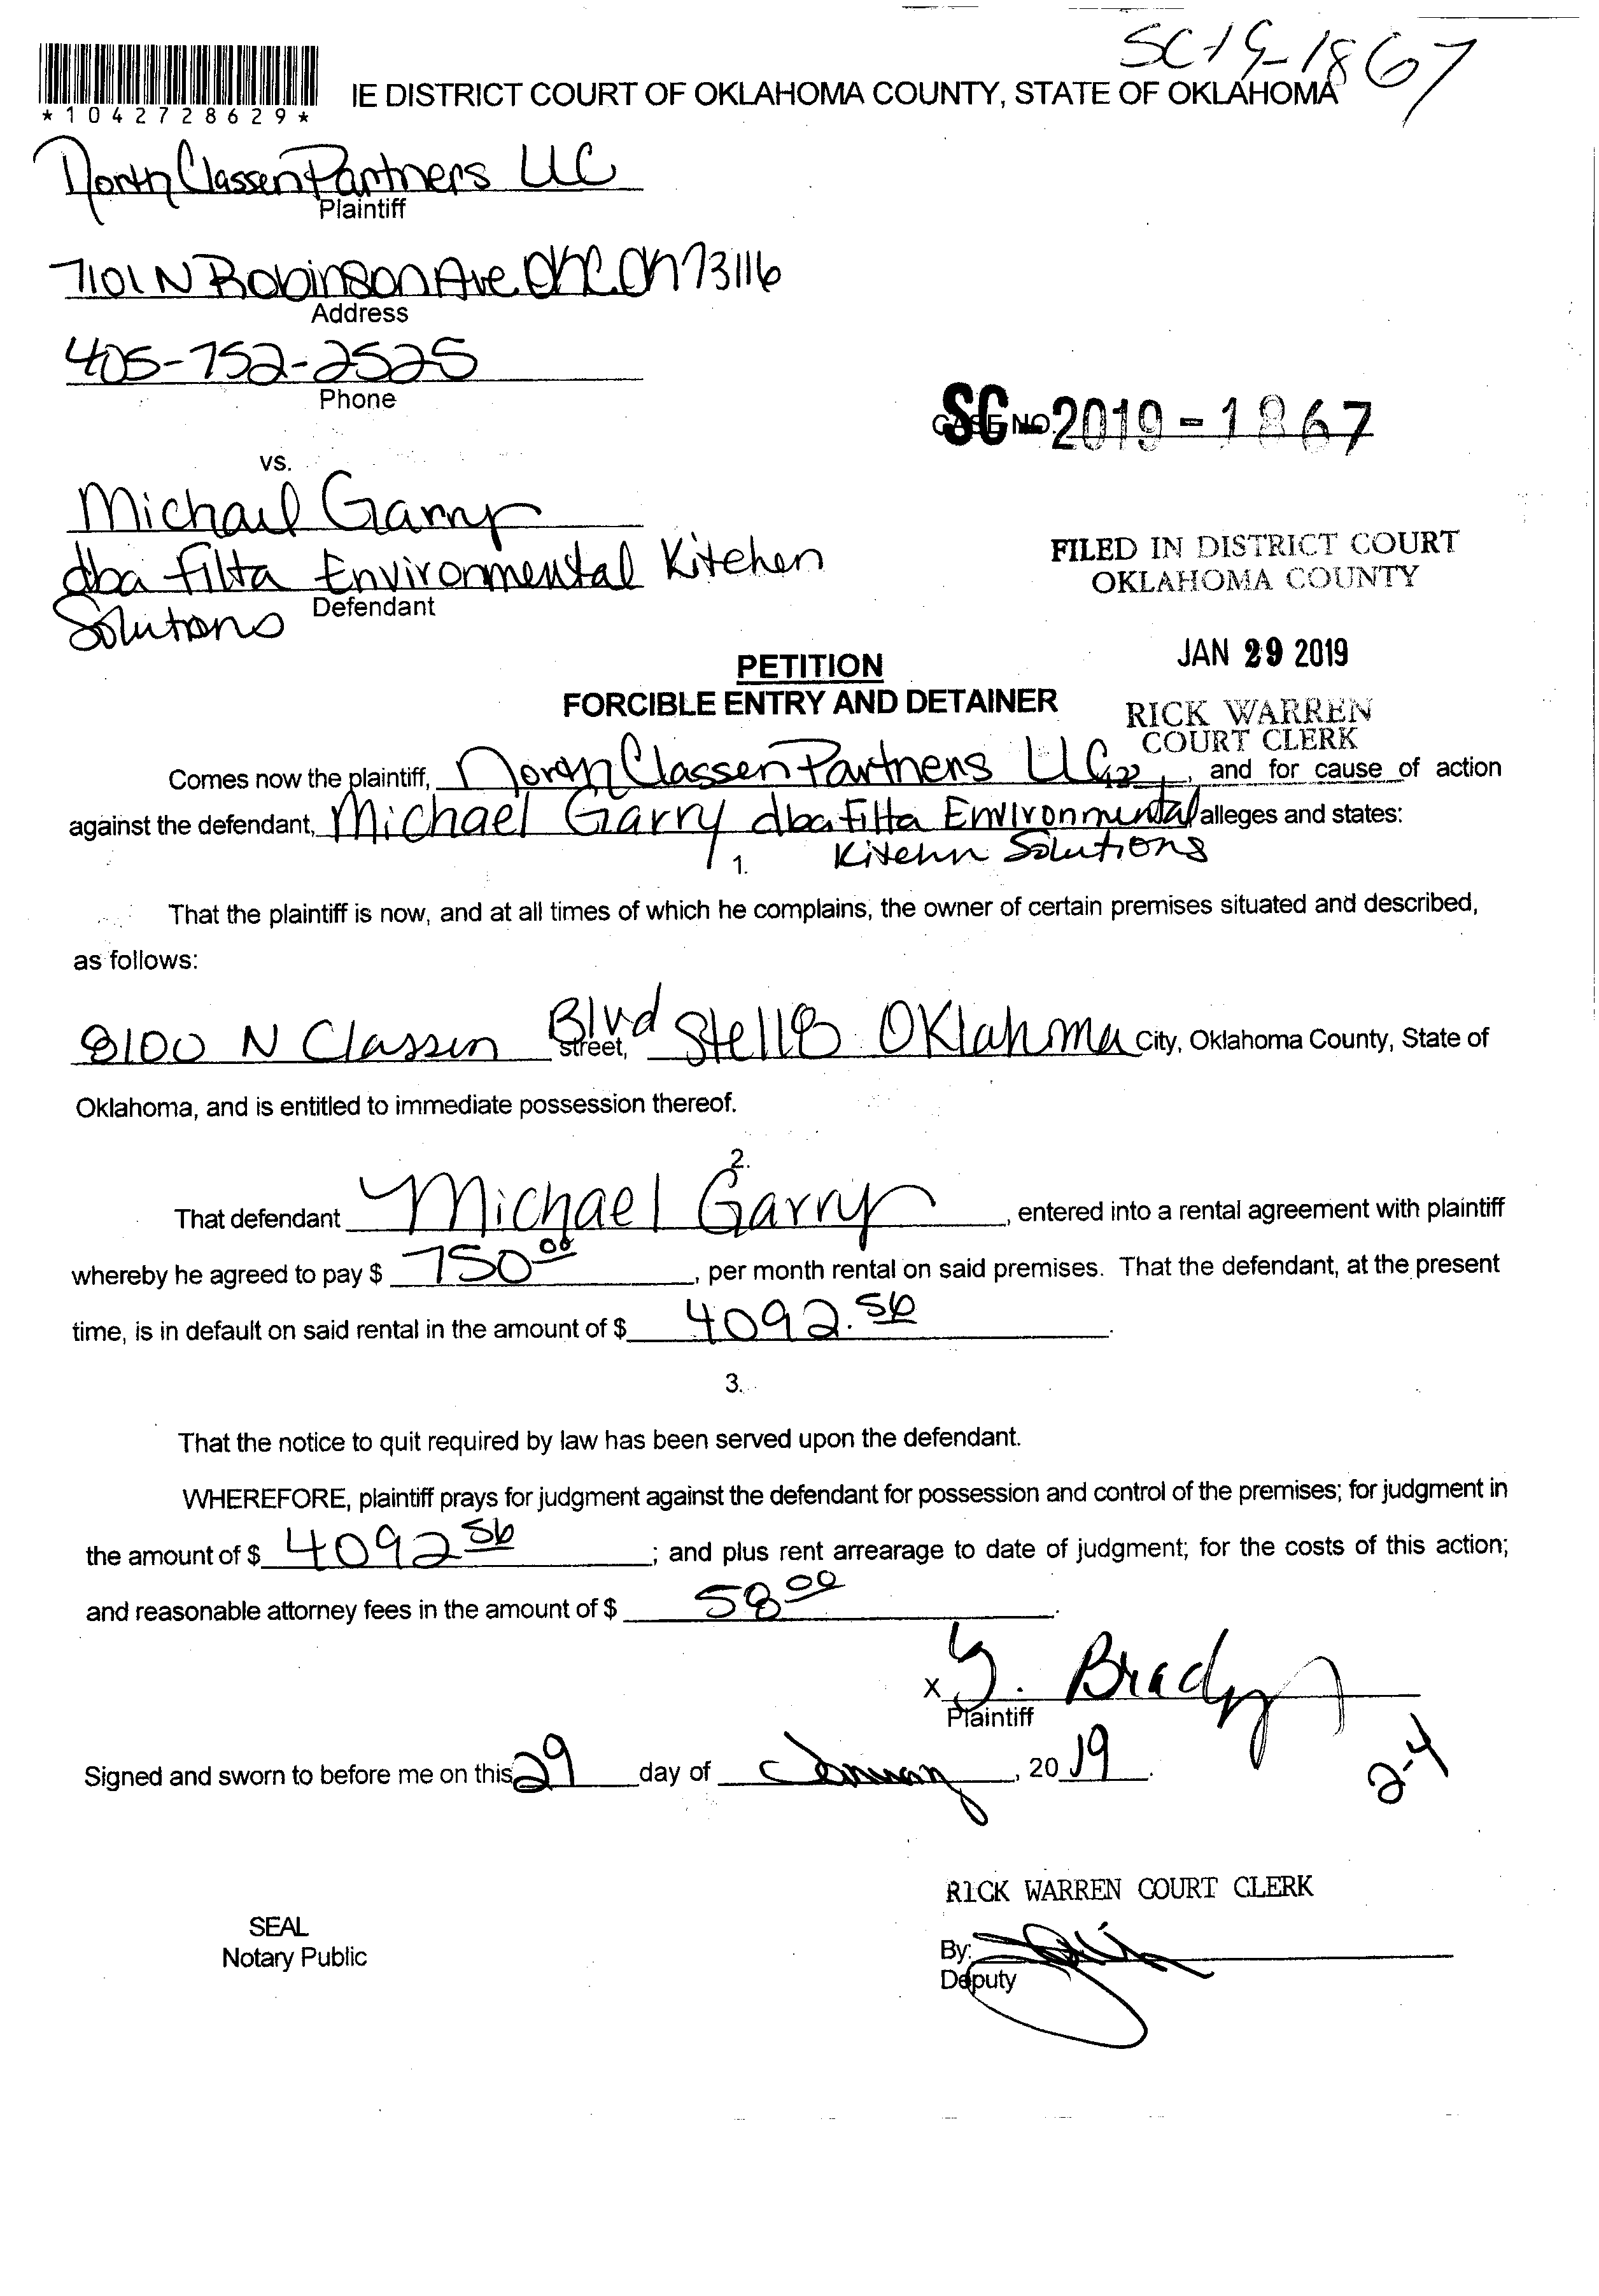 SC-19-1867
*1042728629*
IE DISTRICT COURT OF OKLAHOMA COUNTY, STATE OF OKLAHOMA
North Classen Partners LLC
Plaintiff
7101 N Robinson Ave OKC OK 73116
Address
405-752-2525
Phone
SC CASE NO. 2019-1867
vs.
Michael Garry
dba Filta Environmental Kitchen
Solutions
Defendant
FILED IN DISTRICT COURT
OKLAHOMA COUNTY
JAN 29 2019
RICK WARREN
COURT CLERK
PETITION
FORCIBLE ENTRY AND DETAINER
Comes now the plaintiff, North Classen Partners LLC, and for cause of action
against the defendant, Michael Garry dba Filta Environmental alleges and states:
Kitchn Solutions
1.
That the plaintiff is now, and at all times of which he complains, the owner of certain premises situated and described,
as follows:
8100 N Classen Blvd Street, Oklahoma City, Oklahoma County, State of
Oklahoma, and is entitled to immediate possession thereof.
2.
That defendant Michael Garry, entered into a rental agreement with plaintiff
whereby he agreed to pay $ 750.00, per month rental on said premises. That the defendant, at the present
time, is in default on said rental in the amount of $ 4092.56.
3.
That the notice to quit required by law has been served upon the defendant.
WHEREFORE, plaintiff prays for judgment against the defendant for possession and control of the premises; for judgment in
the amount of $ 4092 56; and plus rent arrearage to date of judgment; for the costs of this action;
and reasonable attorney fees in the amount of $ 58 00.
X Brady
Plaintiff
Signed and sworn to before me on this 29 day of January, 20 19.
2-4
RICK WARREN COURT CLERK
SEAL
Notary Public
By:
Deputy